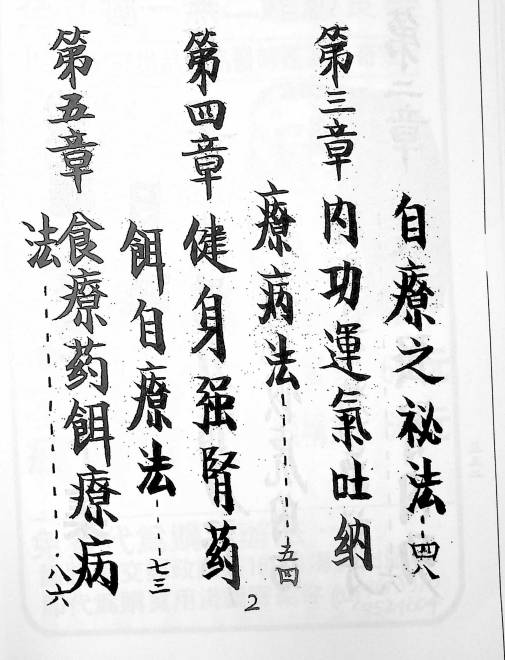 自療之祕法----四八
第三章 内功運氣吐纳
療病法--------五四
第四章 健身强腎药
餌自療法---七三
第五章 食療药餌療病
法------------八六
2